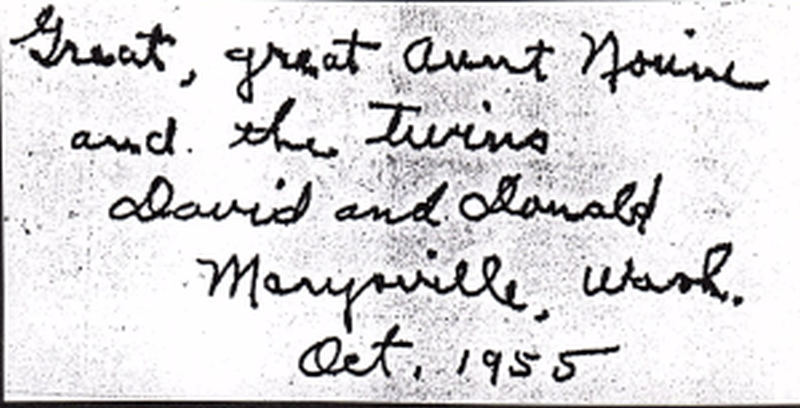 Great, great aunt
and the Twins
David and Donald
Marysville, Wash.
Oct. 1955